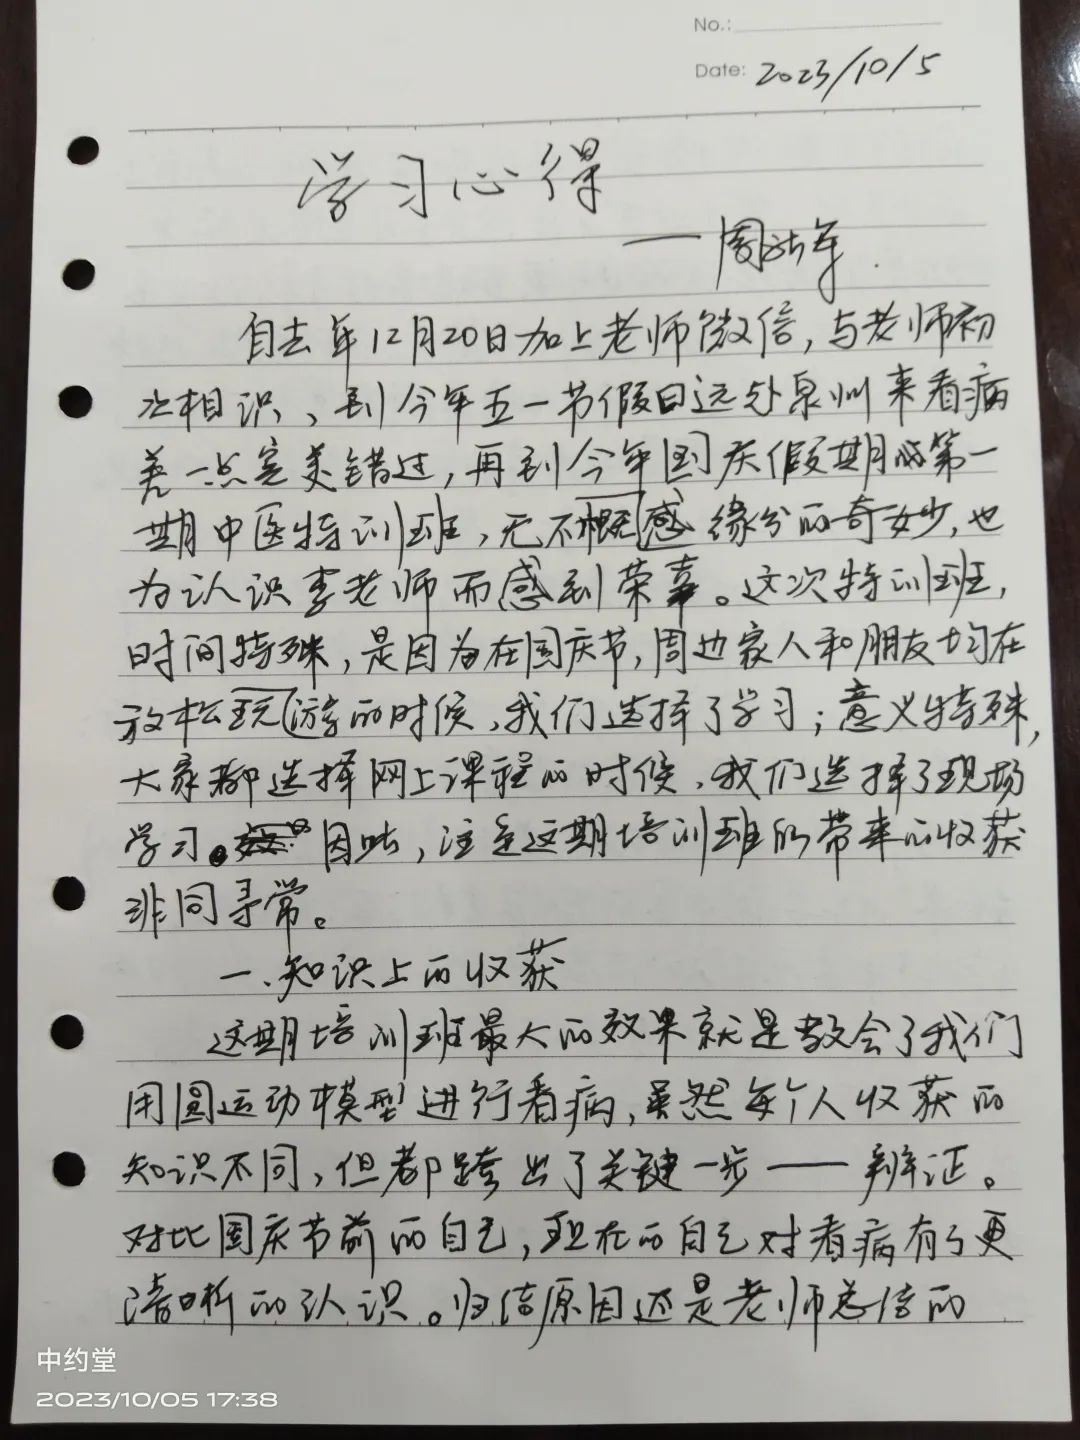 No.:
Date: 2023/10/5
学习心得
——周
自去年12月20日加上老师微信，与老师初
次相识、到今年五一节假日远赴泉州来看病
差一点完美错过，再到今年国庆假期的第一
期中医特训班，无不概感缘分的奇妙，也
为认识李老师而感到荣幸。这次特训班，
时间特殊，是因为在国庆节，周边家人和朋友均在
放松玩游的时候、我们选择了学习；意义特殊，
大家都选择网上课程的时候、我们选择了现场
学习。因此，注定这期培训班所带来的收获
非同寻常。
一、知识上的收获
这期培训班最大的效果就是教会了我们
用圆运动模型进行看病，虽然每个人收获的
知识不同，但都跨出了关键一步——辨证。
对比国庆节前的自己，现在的自己对看病有了更
清晰的认识。归结原因还是老师总结的
中约堂
2023/10/05 17:38